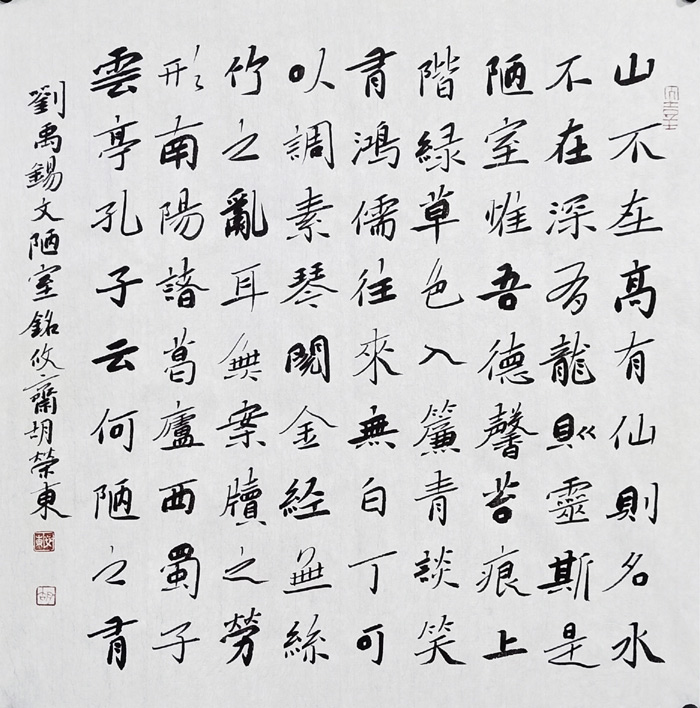 山不在高有仙則名水
不在深有龍則靈斯是
陋室惟吾德馨苔痕上
階緑草色入簾青談笑
有鴻儒往來無白丁可
以調素琴閱金経無絲
竹之亂耳無案牘之勞
形南陽諸葛廬西蜀子
雲亭孔子云何陋之有
劉禹錫文陋室銘攸齋胡榮東